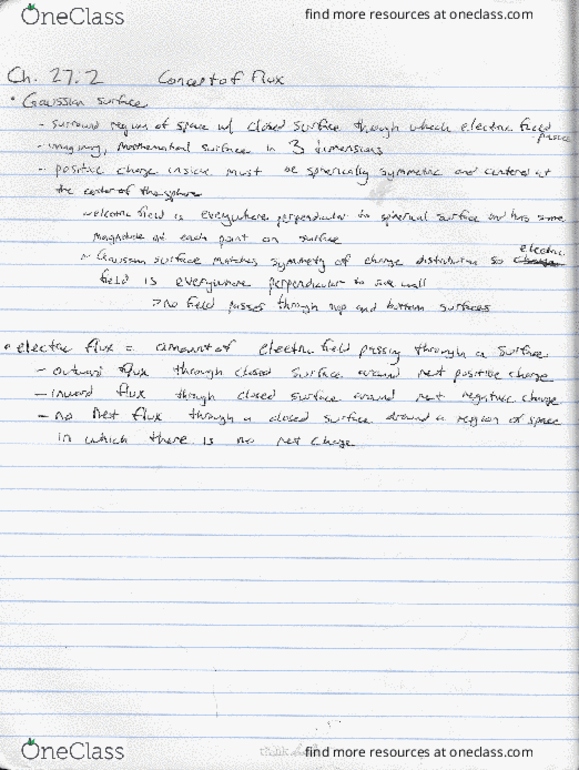 OneClass
find more resources at oneclass.com
Ch. 27.2 Concept of Flux
• Gaussian surface
- surround region of space w/ closed surface through which electric field passes
- imaginary, mathematical surface in 3 dimensions
- positive charge inside must be spherically symmetric and centered at
the center of the sphere
~ electric field is everywhere perpendicular to spherical surface and has same
magnitude at each point on surface
~ Gaussian surface matches symmetry of charge distribution so electric
field is everywhere perpendicular to side wall
> no field passes through top and bottom surfaces
• electric flux = amount of electric field passing through a surface
- outward flux through closed surface around net positive charge
- inward flux though closed surface around net negative charge
- no net flux through a closed surface around a region of space
in which there is no net charge
OneClass
find more resources at oneclass.com